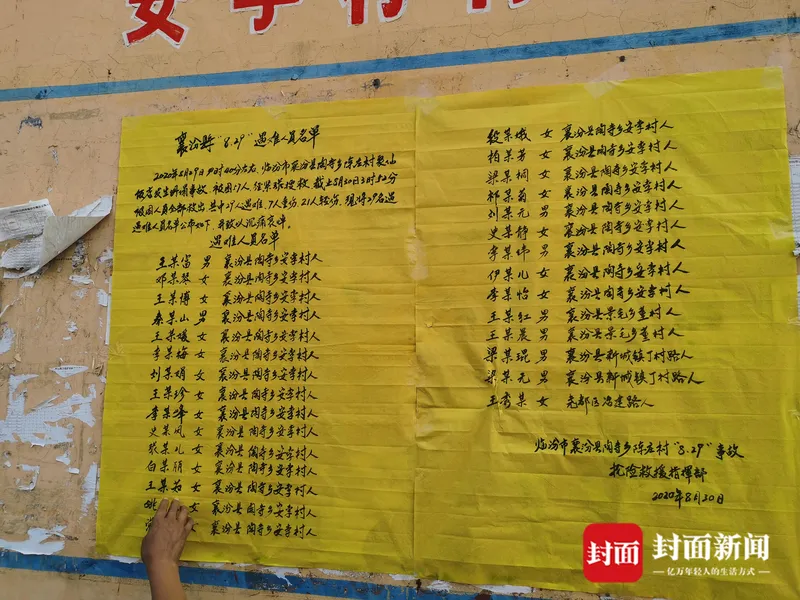 安李村村
襄汾县"8.29"遇难人员名单
2020年8月29日9时40分左右,临汾市襄汾县陶寺乡陈庄村聚仙
饭店发生坍塌事故,被困57人,经紧张搜救,截止8月30日3时52分
被困人员全部救出,其中29人遇难,7人重伤,21人轻伤,现将29名遇
遇难人员名单公布如下,并致以沉痛哀悼。
遇难人员名单
王某富 男 襄汾县陶寺乡安李村人
邓某琴 女 襄汾县陶寺乡安李村人
王某博 女 襄汾县陶寺乡安李村人
秦某山 男 襄汾县陶寺乡安李村人
王某媛 女 襄汾县陶寺乡安李村人
李某梅 女 襄汾县陶寺乡安李村人
刘某娟 女 襄汾县陶寺乡安李村人
王某珍 女 襄汾县陶寺乡安李村人
李某峰 女 襄汾县陶寺乡安李村人
史某凤 女 襄汾县陶寺乡安李村人
张某儿 女 襄汾县陶寺乡安李村人
白某丽 女 襄汾县陶寺乡安李村人
王某茹 女 襄汾县陶寺乡安李村人
姚 女 襄汾县陶寺乡安李村人
女 襄汾县陶寺乡安李村人
段某娥 女 襄汾县陶寺乡安李村人
柏某芳 女 襄汾县陶寺乡安李村人
梁某桐 女 襄汾县陶寺乡安李村人
祁某菊 女 襄汾县陶寺乡安李村人
刘某元 男 襄汾县陶寺乡安李村人
史某静 女 襄汾县陶寺乡安李村人
李某玮 男 襄汾县陶寺乡安李村人
伊某儿 女 襄汾县陶寺乡安李村人
李某怡 女 襄汾县陶寺乡安李村人
王某红 男 襄汾县景毛乡董村人
王某晨 男 襄汾县景毛乡董村人
梁某琨 男 襄汾县新城镇丁村路人
梁某元 男 襄汾县新城镇丁村路人
王秀某 女 尧都区冶建路人
临汾市襄汾县陶寺乡陈庄村"8.29"事故
抢险救援指挥部
2020年8月30日
封面 封面新闻
亿万年轻人的生活方式